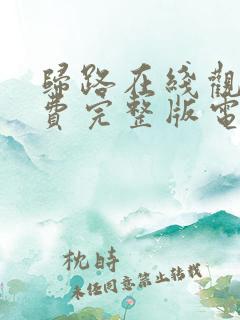 歸路在綫觀
費完整版電
枕時
未经同意禁止转载